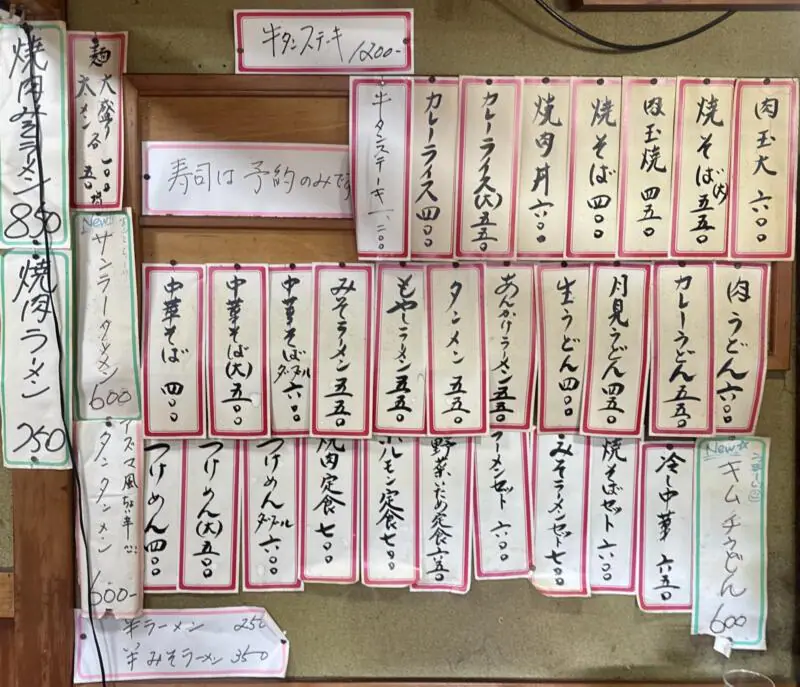 牛タンステーキ 1200-
焼肉みそラーメン 850
焼肉ラーメン 750
麺大盛り 一〇〇増
太メン 各 五〇増
寿司は予約のみです
肉玉大 六〇〇
焼そば(大) 五五〇
肉玉焼 四五〇
焼そば 四〇〇
焼肉丼 六〇〇
カレーライス(大) 五五〇
カレーライス 四〇〇
牛タンステーキ 一、二〇〇
肉うどん 六〇〇
カレーうどん 五五〇
月見うどん 四五〇
生うどん 四〇〇
あんかけラーメン 五五〇
タンメン 五五〇
もやしラーメン 五五〇
みそラーメン 五五〇
中華そば ダブル 六〇〇
中華そば(大) 五〇〇
中華そば 四〇〇
New!!
サンラータンメン 600
New☆
キムチうどん 600
冷し中華 六五〇
焼そばセット 六〇〇
みそラーメンセット 七〇〇
ラーメンセット 六〇〇
野菜いため定食 六五〇
ホルモン定食 七〇〇
焼肉定食 七〇〇
つけめん ダブル 六〇〇
つけめん(大) 五〇〇
つけめん 四〇〇
イズマ風ちょい辛
タンタンメン 600-
半ラーメン 250
半みそラーメン 350